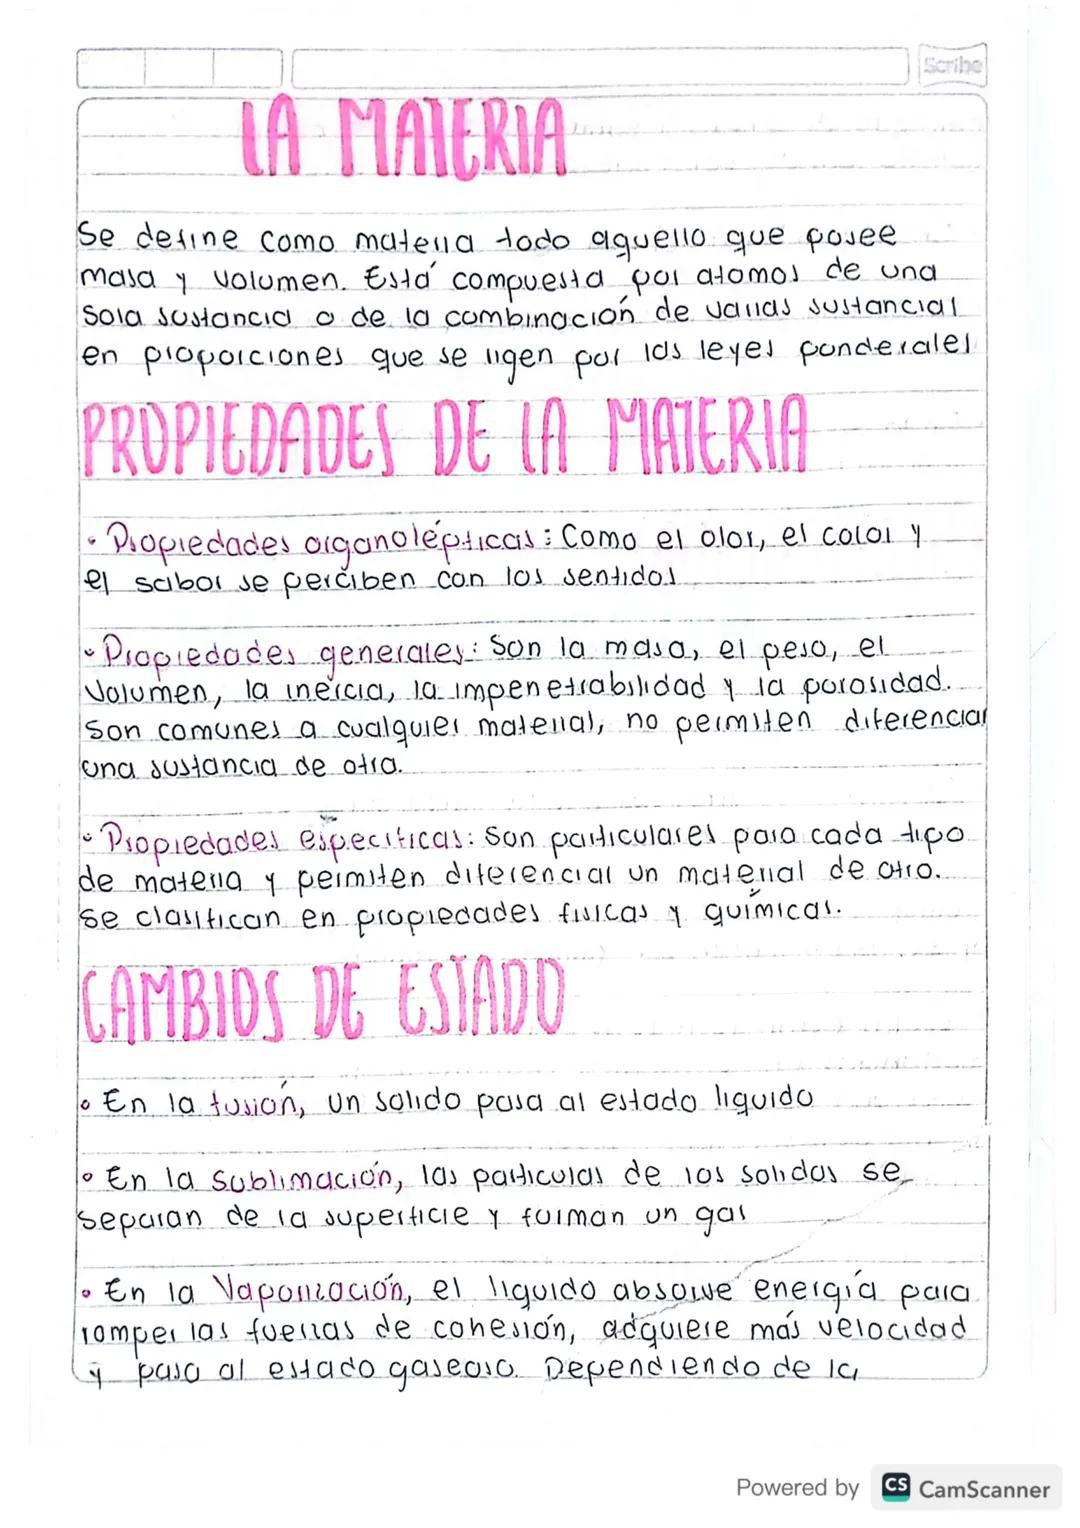 Scribe
LA MATERIA
Se define como materia todo aquello que posee
masa y volumen. Está compuesta por atomos de una
sola sustancia o de la combinación de varias sustancias
en proporciones que se rigen por las leyes ponderales
PROPIEDADES DE LA MATERIA
• Propiedades organolépticas: Como el olor, el color y
el sabor se perciben con los sentidos
• Propiedades generales: Son la masa, el peso, el
volumen, la inercia, la impenetrabilidad y la porosidad.
Son comunes a cualquier material, no permiten diferenciar
una sustancia de otra.
• Propiedades especificas: Son particulares para cada tipo
de materia y permiten diferenciar un material de otro.
se clasifican en propiedades fisicas y químicas.
CAMBIOS DE ESTADO
• En la fusión, un solido pasa al estado liquido
• En la Sublimación, las particulas de los solidos se
separan de la superficie y forman un gas
• En la Vaporización, el liquido absorve energía para
romper las fuerzas de cohesión, adquiere más velocidad
y pasa al estado gaseoso. Dependiendo de la
Powered by CS CamScanner